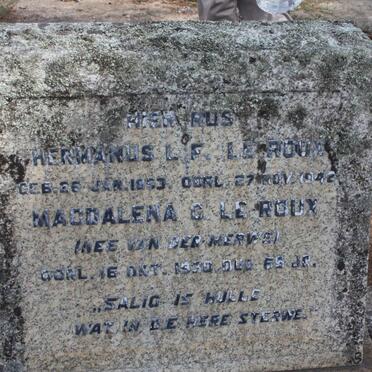 HIER RUS
HERMANUS L. F. LE ROUX
GEB. 26 JAN. 1853. OORL. 27 NOV. 1942
MAGDALENA C. LE ROUX
(NEE VAN DER MERWE)
OORL. 16 OKT. 1930. OUD 69 JR.
„SALIG IS HULLE
WAT IN DIE HERE STERWE."